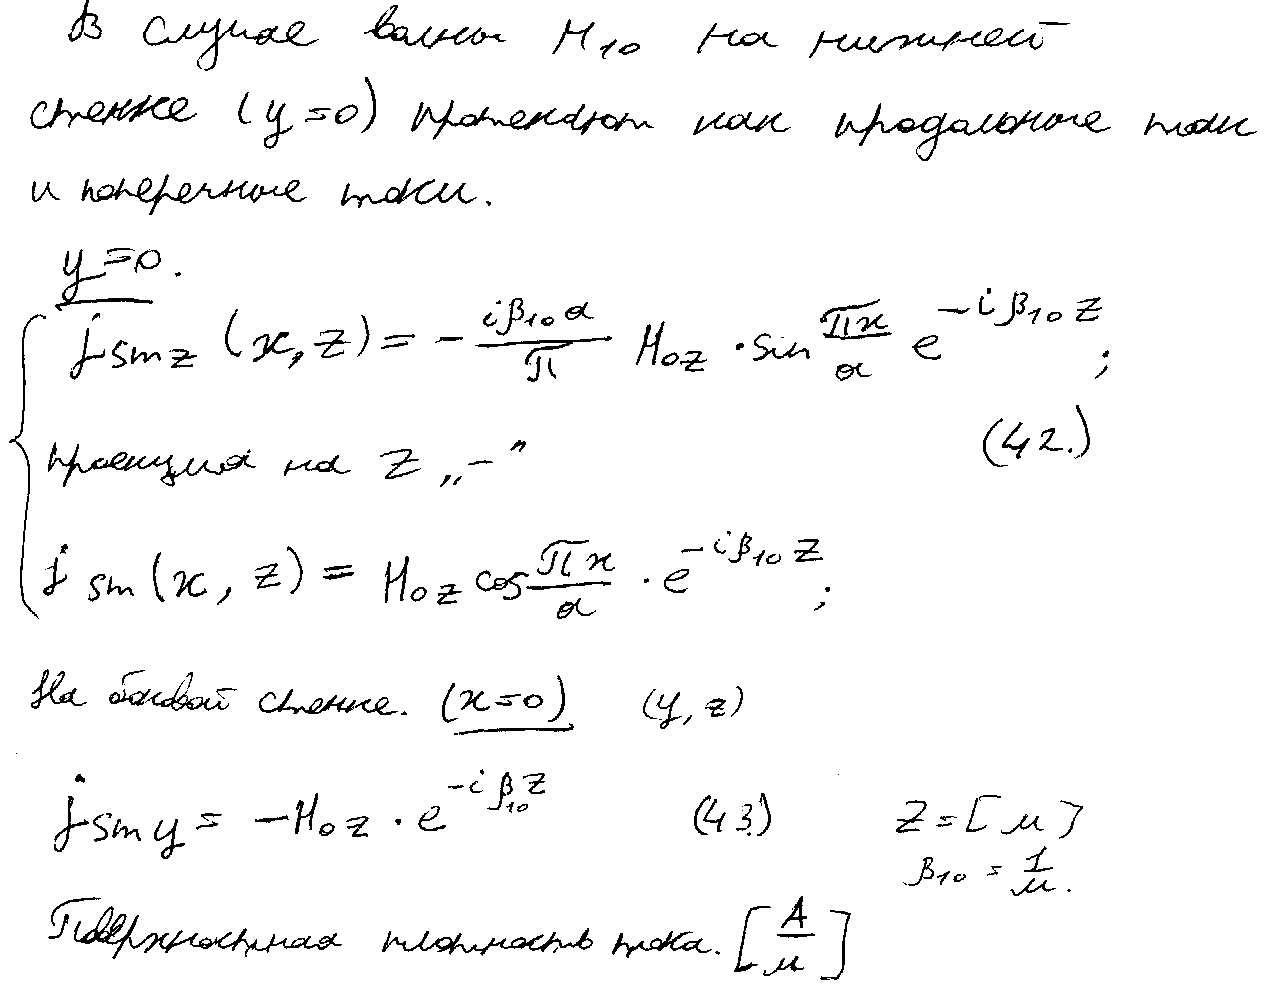 В случае волны H₁₀ на нижней
стенке (y=0) протекают как продольные токи
и поперечные токи.
y=0.
j_smz (x, z) = - (iβ₁₀a / π) H₀z · sin (πx / a) e^(-iβ₁₀z);
(42.)
проекция на z „-"
j_sm (x, z) = H₀z cos (πx / a) · e^(-iβ₁₀z);
На боковой стенке. (x=0) (y, z)
j_smy = -H₀z · e^(-iβ₁₀z) (43.) z = [м]
β₁₀ = 1/м.
Поверхностная плотность тока. [А/м]